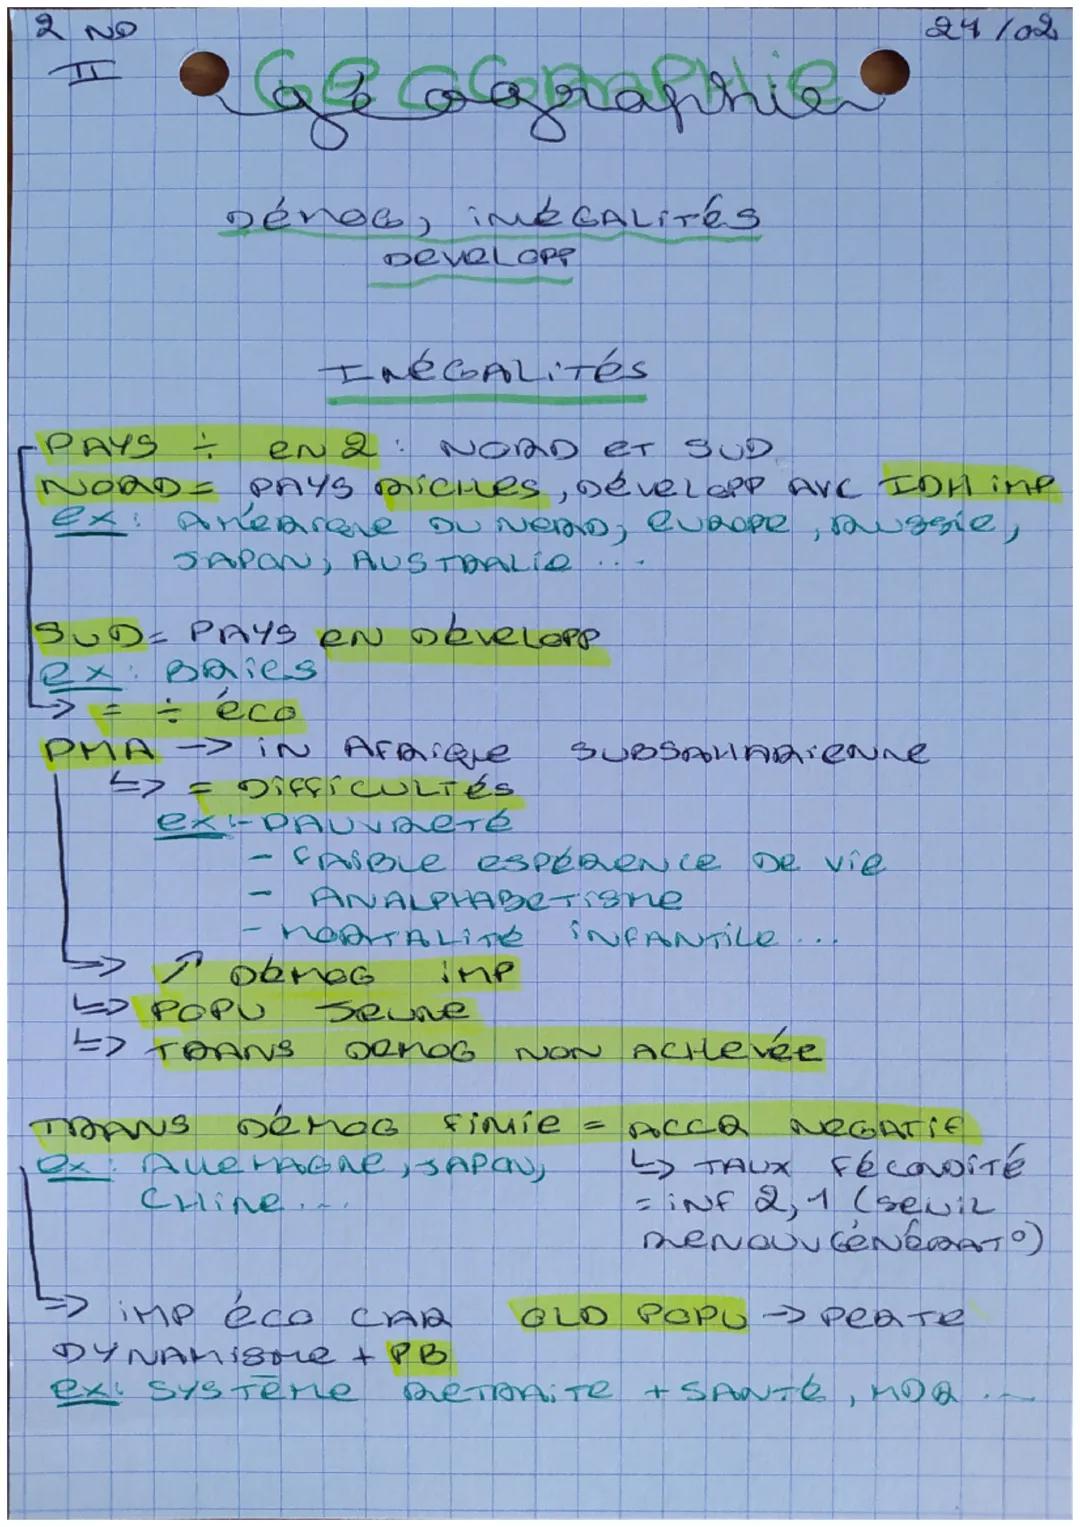 2 ND
24/02
II
Géographie
DÉMOG, INÉGALITÉS
DEVELOPP
INÉGALITÉS
PAYS ÷ EN 2 : NORD ET SUD
NORD = PAYS RICHES, DÉVELOPP AVC IDH IMP
ex : AMÉRIQUE DU NORD, EUROPE, RUSSIE,
JAPON, AUSTRALIE ...
SUD = PAYS EN DÉVELOPP
ex : BRICS
-> = ÷ ÉCO
PMA -> IN AFRIQUE SUBSAHARIENNE
↳ = DIFFICULTÉS
ex : - PAUVRETÉ
- FAIBLE ESPÉRENCE DE VIE
- ANALPHABETISME
- MORTALITÉ INFANTILE ...
-> ↗ DÉMOG IMP
↳ POPU JEUNE
↳ TRANS DEMOG NON ACHEVÉE
TRANS DÉMOG FINIE = ACCR NEGATIF
ex : ALLEMAGNE, JAPON, ↳ TAUX FÉCONDITÉ
CHINE ... = INF 2,1 (SEUIL
RENOUV GÉNÉRAT°)
-> IMP ÉCO CAR OLD POPU -> PERTE
DYNAMISME + PB
ex : SYSTÈME RETRAITE + SANTÉ, MDR ...